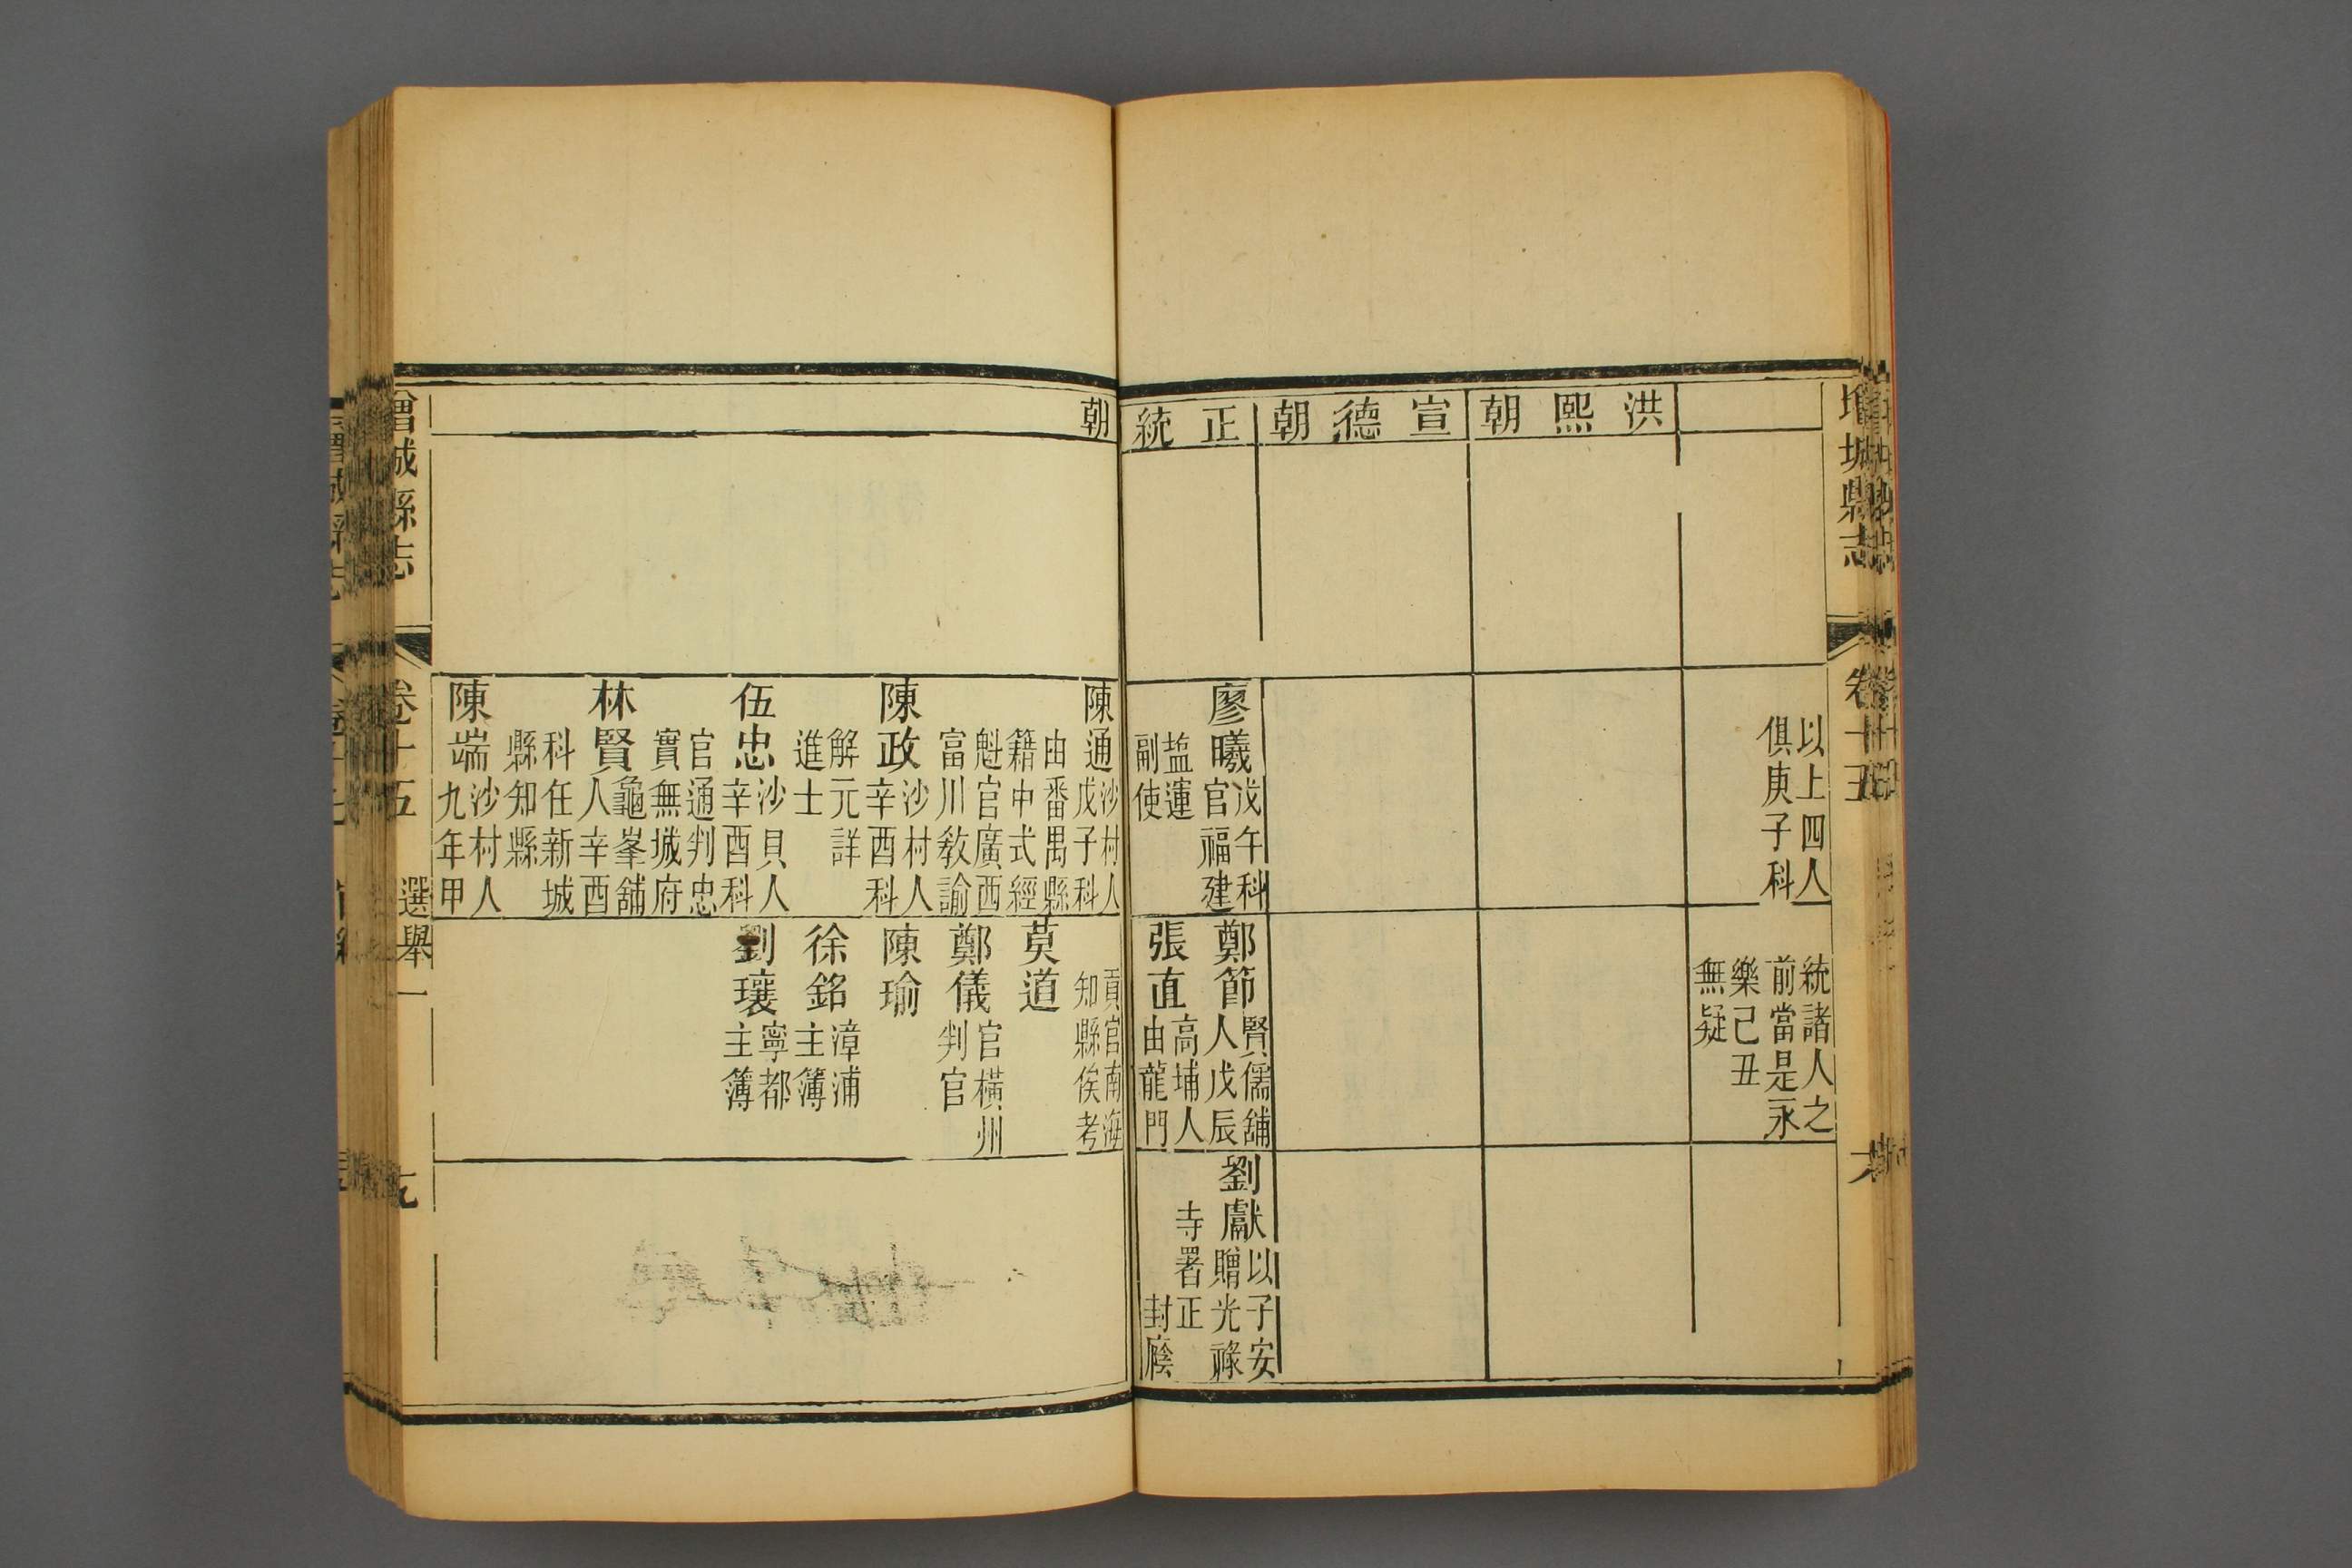 增城縣志
卷十五
洪熙朝
宣德朝
正統
以上四人
俱庚子科
廖曦
戊午科
官福建
盐運
副使
統諸人之
前當是永
樂己丑
無疑
鄭節
賢儒舖
人戊辰
張直
高埔人
由龍門
劉獻
以子安
贈光祿
寺署正
封廕
朝
陳通
沙村人
戊子科
由番禺縣
籍中式經
魁官廣西
富川教諭
陳政
沙村人
辛酉科
解元詳
進士
伍忠
沙貝人
辛酉科
官通判忠
實無城府
林賢
龜峯舖
人辛酉
科任新城
縣知縣
陳端
沙村人
九年甲
貢官南海
知縣俟考
莫道
鄭儀
官橫州
判官
陳瑜
徐銘
漳浦
主簿
劉瓖
寧都
主簿
增城縣志
卷十五
選舉一